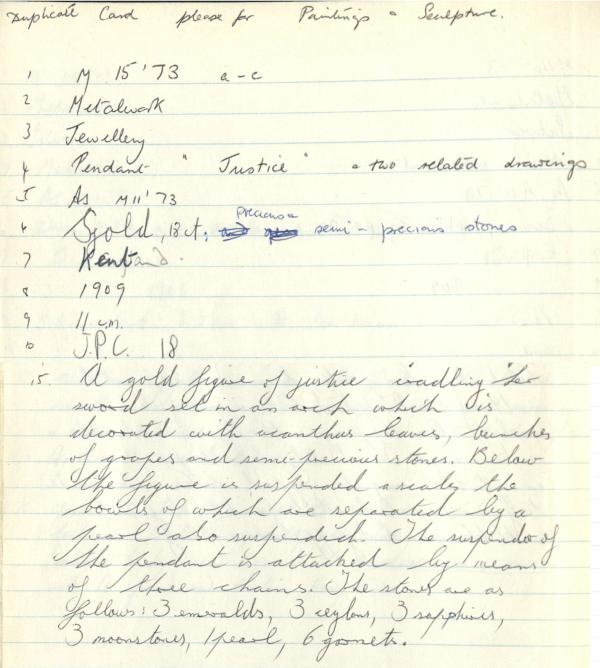 Duplicate Card please for Paintings & Sculpture.
1 M 15'73 a-c
2 Metalwork
3 Jewellery
4 Pendant "Justice" & two related drawings
5 As M11'73
precious &
6 Gold, 18ct; semi-precious stones
7 Kent
8 1909
9 11 cm.
10 J.P.C. 18
15. A gold figure of justice cradling her
sword set in an arch which is
decorated with acanthus leaves, bunches
of grapes and semi-precious stones. Below
the figure is suspended a scales the
bowls of which are separated by a
pearl also suspended. The suspendor of
the pendant is attached by means
of three chains. The stones are as
follows: 3 emeralds, 3 ceylons, 3 sapphires,
3 moonstones, 1 pearl, 6 garnets.